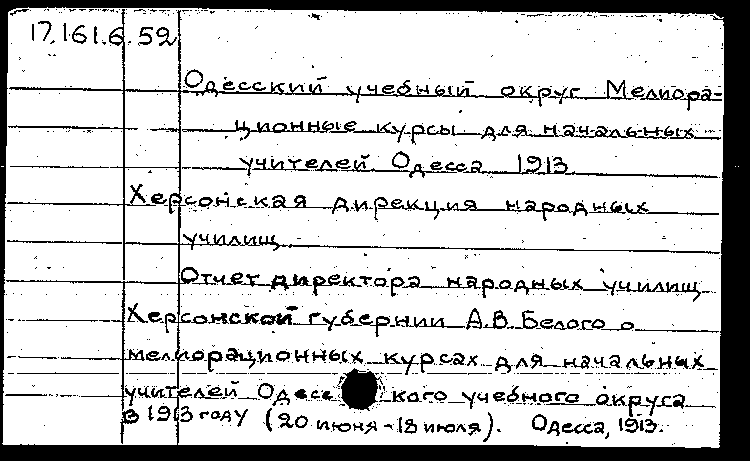 17.161.6.52
Одесский учебный округ Мелиора-
ционные курсы для начальных
учителей. Одесса 1913.
Херсонская дирекция народных
училищ.
Отчет директора народных училищ
Херсонской губернии А.В. Белого о
мелиорационных курсах для начальных
учителей Одесского учебного округа
в 1913 году (20 июня - 18 июля). Одесса, 1913.